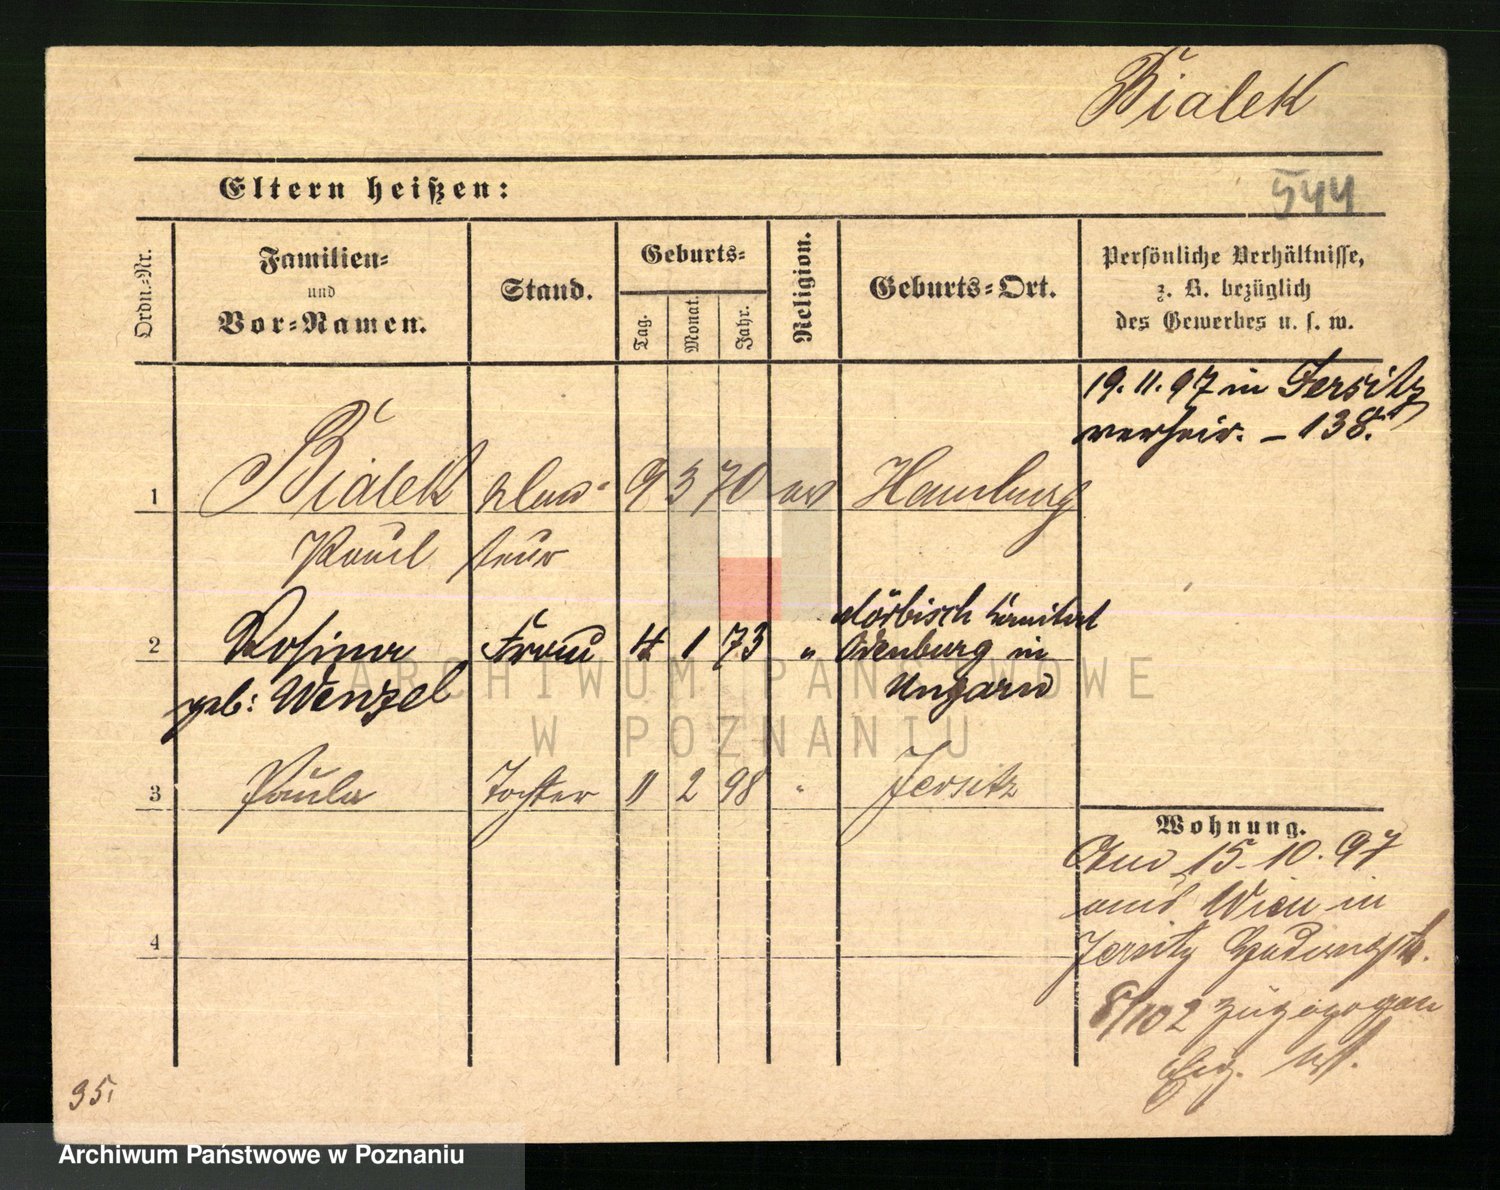 Bialek
Eltern heißen:
544
Ordn.-Nr.
Familien-
und
Vor-Namen.
Stand.
Geburts-
Tag.
Monat.
Jahr.
Religion.
Geburts-Ort.
Persönliche Verhältnisse,
z. B. bezüglich
des Gewerbes u. s. w.
19. 11. 97 in Jersitz
verheir. - 138.
1 Bialek 9 3 70 ev Hamburg
Paul
2 Rosina Frau 4 1 73 " Mörbisch Comitat
Ödenburg in
geb: Wenzel Ungarn
3 Paula Tochter 11 2 98 " Jersitz
4
Wohnung.
Am 15. 10. 97
aus Wien in
Jersitz
8/102 zugezogen
35.
ARCHIWUM PAŃSTWOWE
W POZNANIU
Archiwum Państwowe w Poznaniu